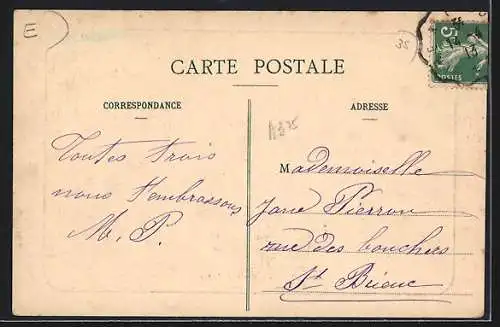 E
35
5
POSTES
CARTE POSTALE
CORRESPONDANCE
ADRESSE
Toutes trois
nous t'embrassons
M. P.
Mademoiselle
Jane Pierron
rue des bouchers
St Brieuc